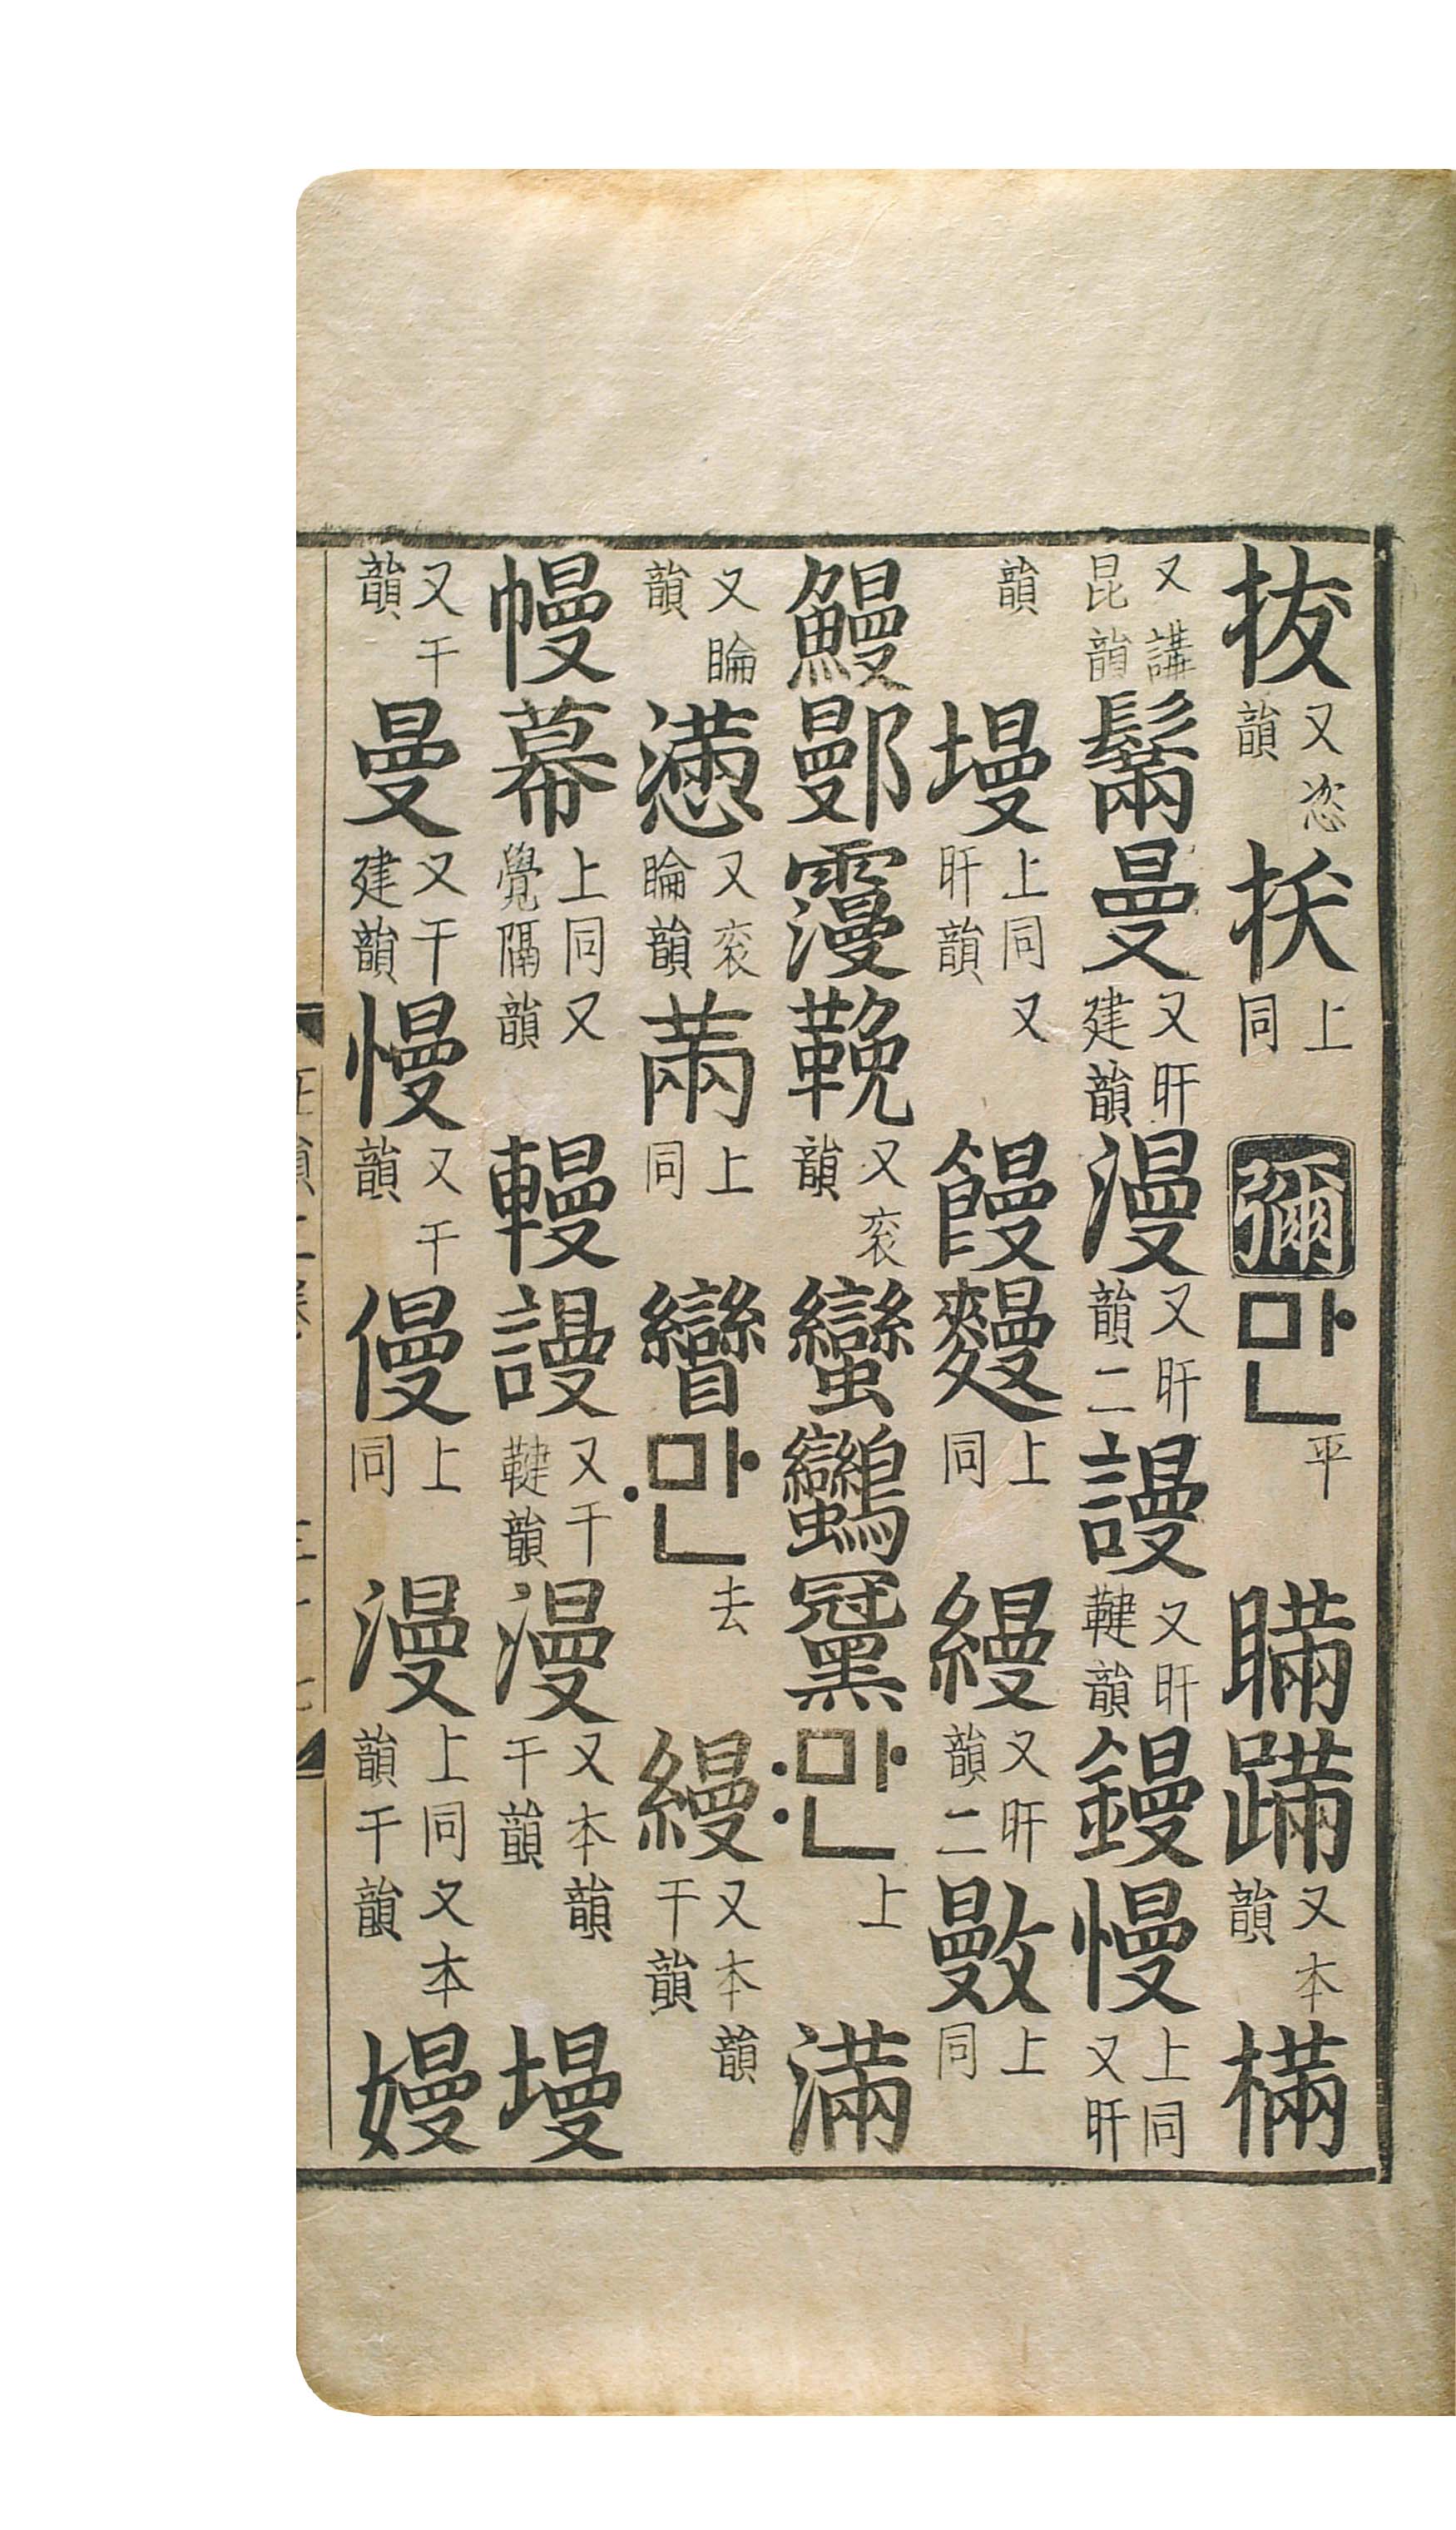 拔又恣韻㧞上同彌만平瞞蹣又本韻樠
又講昆韻鬗曼又旰建韻漫又旰韻二謾又旰鞬韻鏝慢上同又旰
韻墁上同又旰韻饅䝢上同縵又旰韻二㪤上同
鰻鄤𩆓鞔又衮韻蠻鸞만上滿
又睔韻懣又衮睔韻㒼上同矕만去縵又本韻干韻
幔幕上同又覺隔韻䡬謾又干鞬韻漫又本韻干韻墁
又干韻曼又干建韻慢又干韻僈上同漫上同又本韻干韻嫚